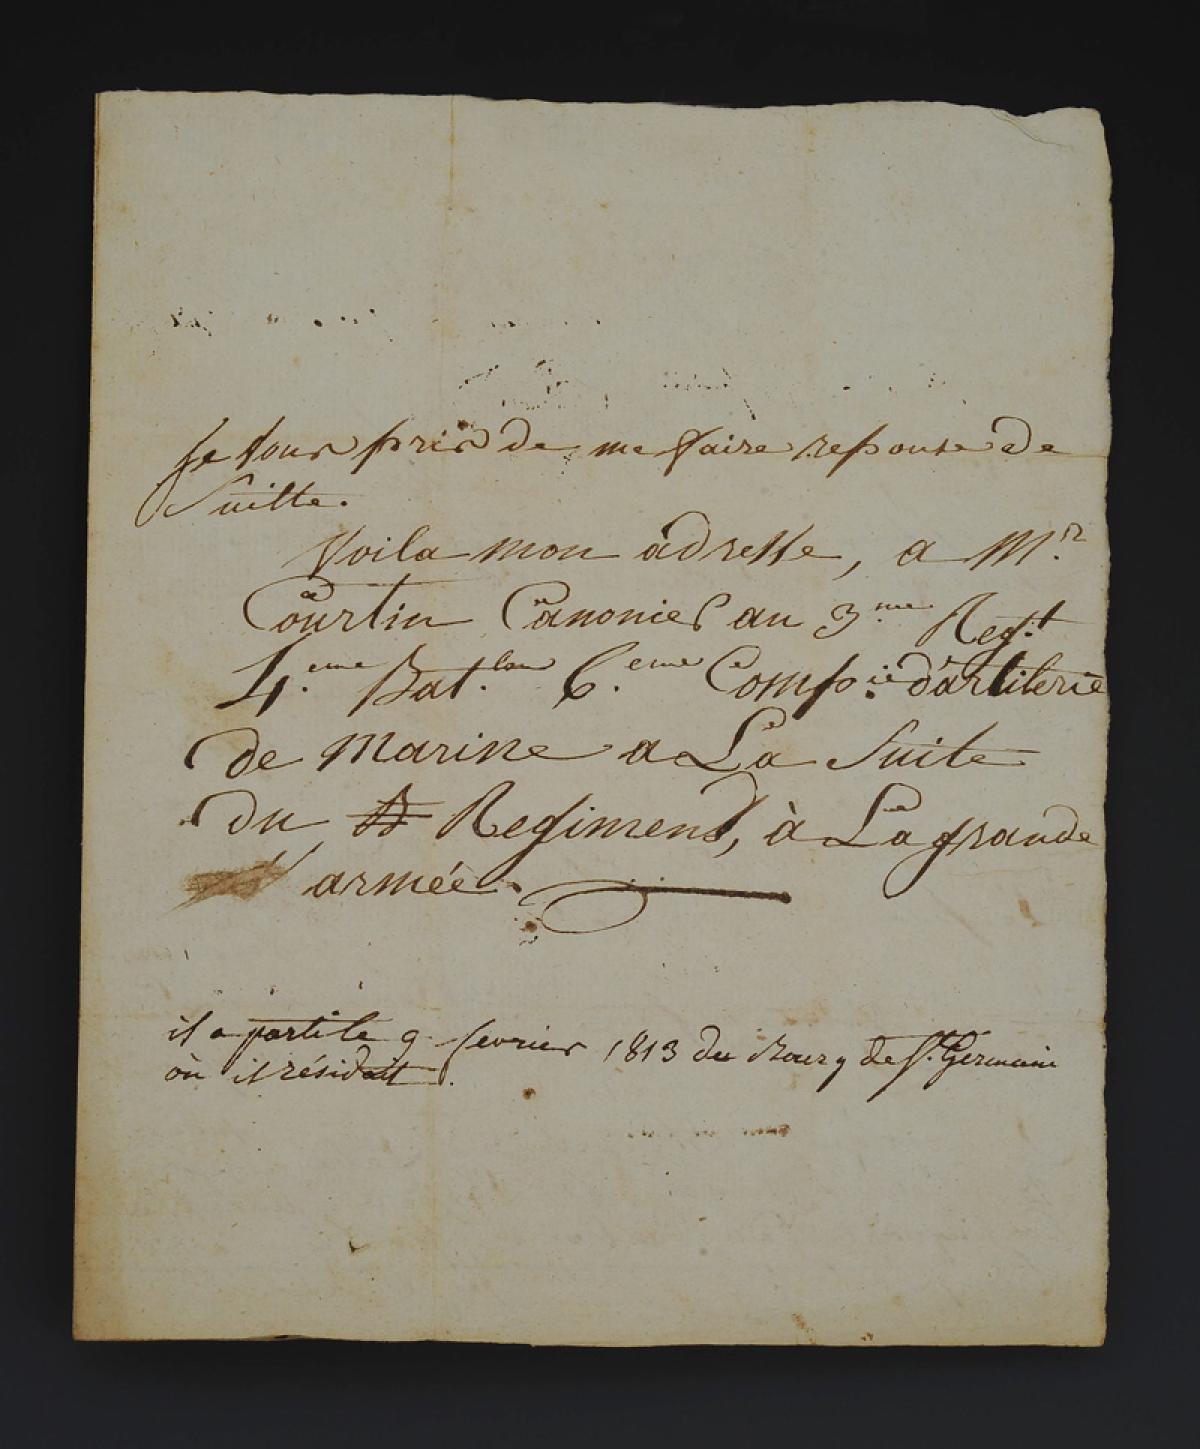 Je vous pris de me faire reponse de
Suitte.
Voila mon adresse, a M.r
Courtin Canonier au 3.me Reg.t
4.eme Bat.lon 6.eme Comp.ie d'artilerie
de Marine a La Suite
du Regiment, à La grande
armée.
il a parti le 9 fevrier 1813 du Bourg de St. Germain
où il résidait.